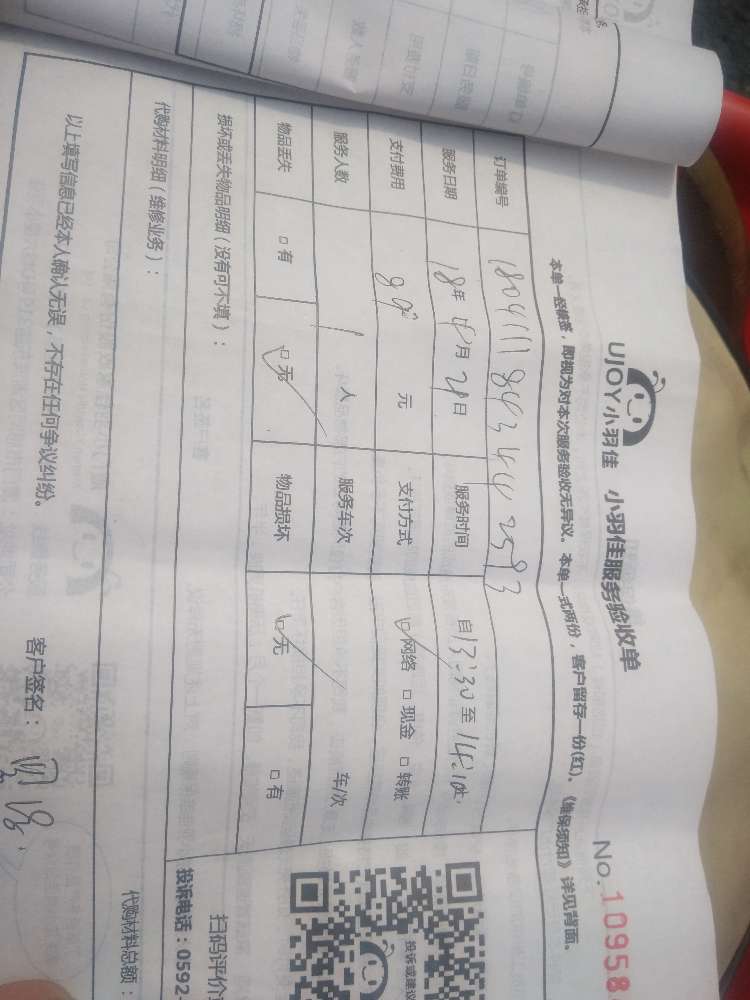 UJOY小羽佳 小羽佳服务验收单
No.10958
本单一经签签，即视为对本次服务验收无异议。本单一式两份，客户留存一份(红)。《维保须知》详见背面。
订单编号
服务日期 18年 4月 21日 服务时间 自13:30至14:10
支付费用 元 支付方式 □网络 □现金 □转账
服务人数 1人 服务车次 车/次
物品丢失 □有 □无 物品损坏 □无 □有
损坏或丢失物品明细（没有可不填）：
代购材料明细（维修业务）：
代购材料总额：
以上填写信息已经本人确认无误，不存在任何争议纠纷。
客户签名：
投诉或建议
扫码评价
投诉电话：0592-